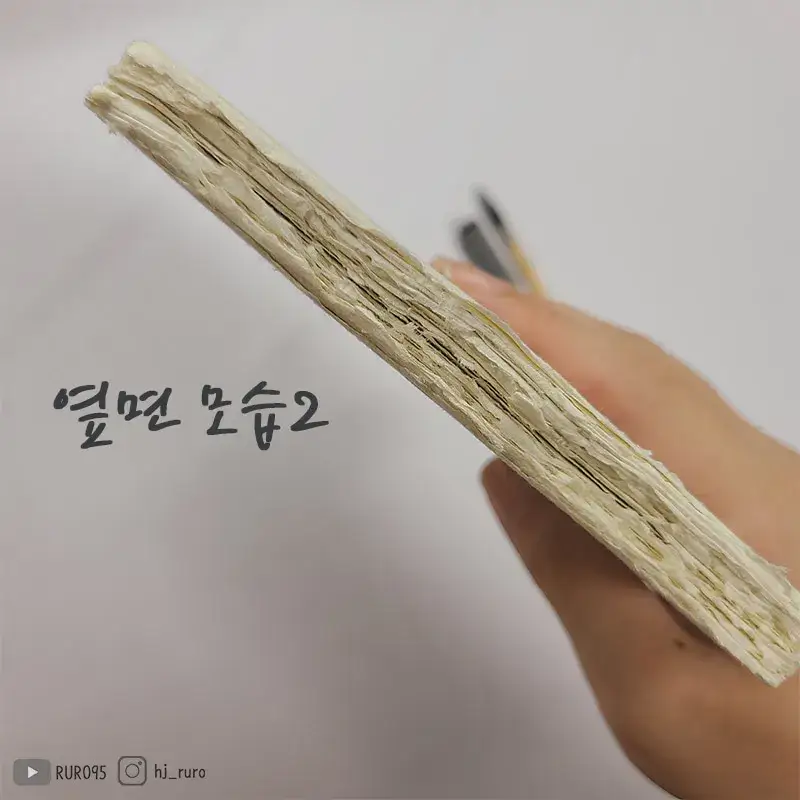 옆면 모습2
RURO95 hj_ruro